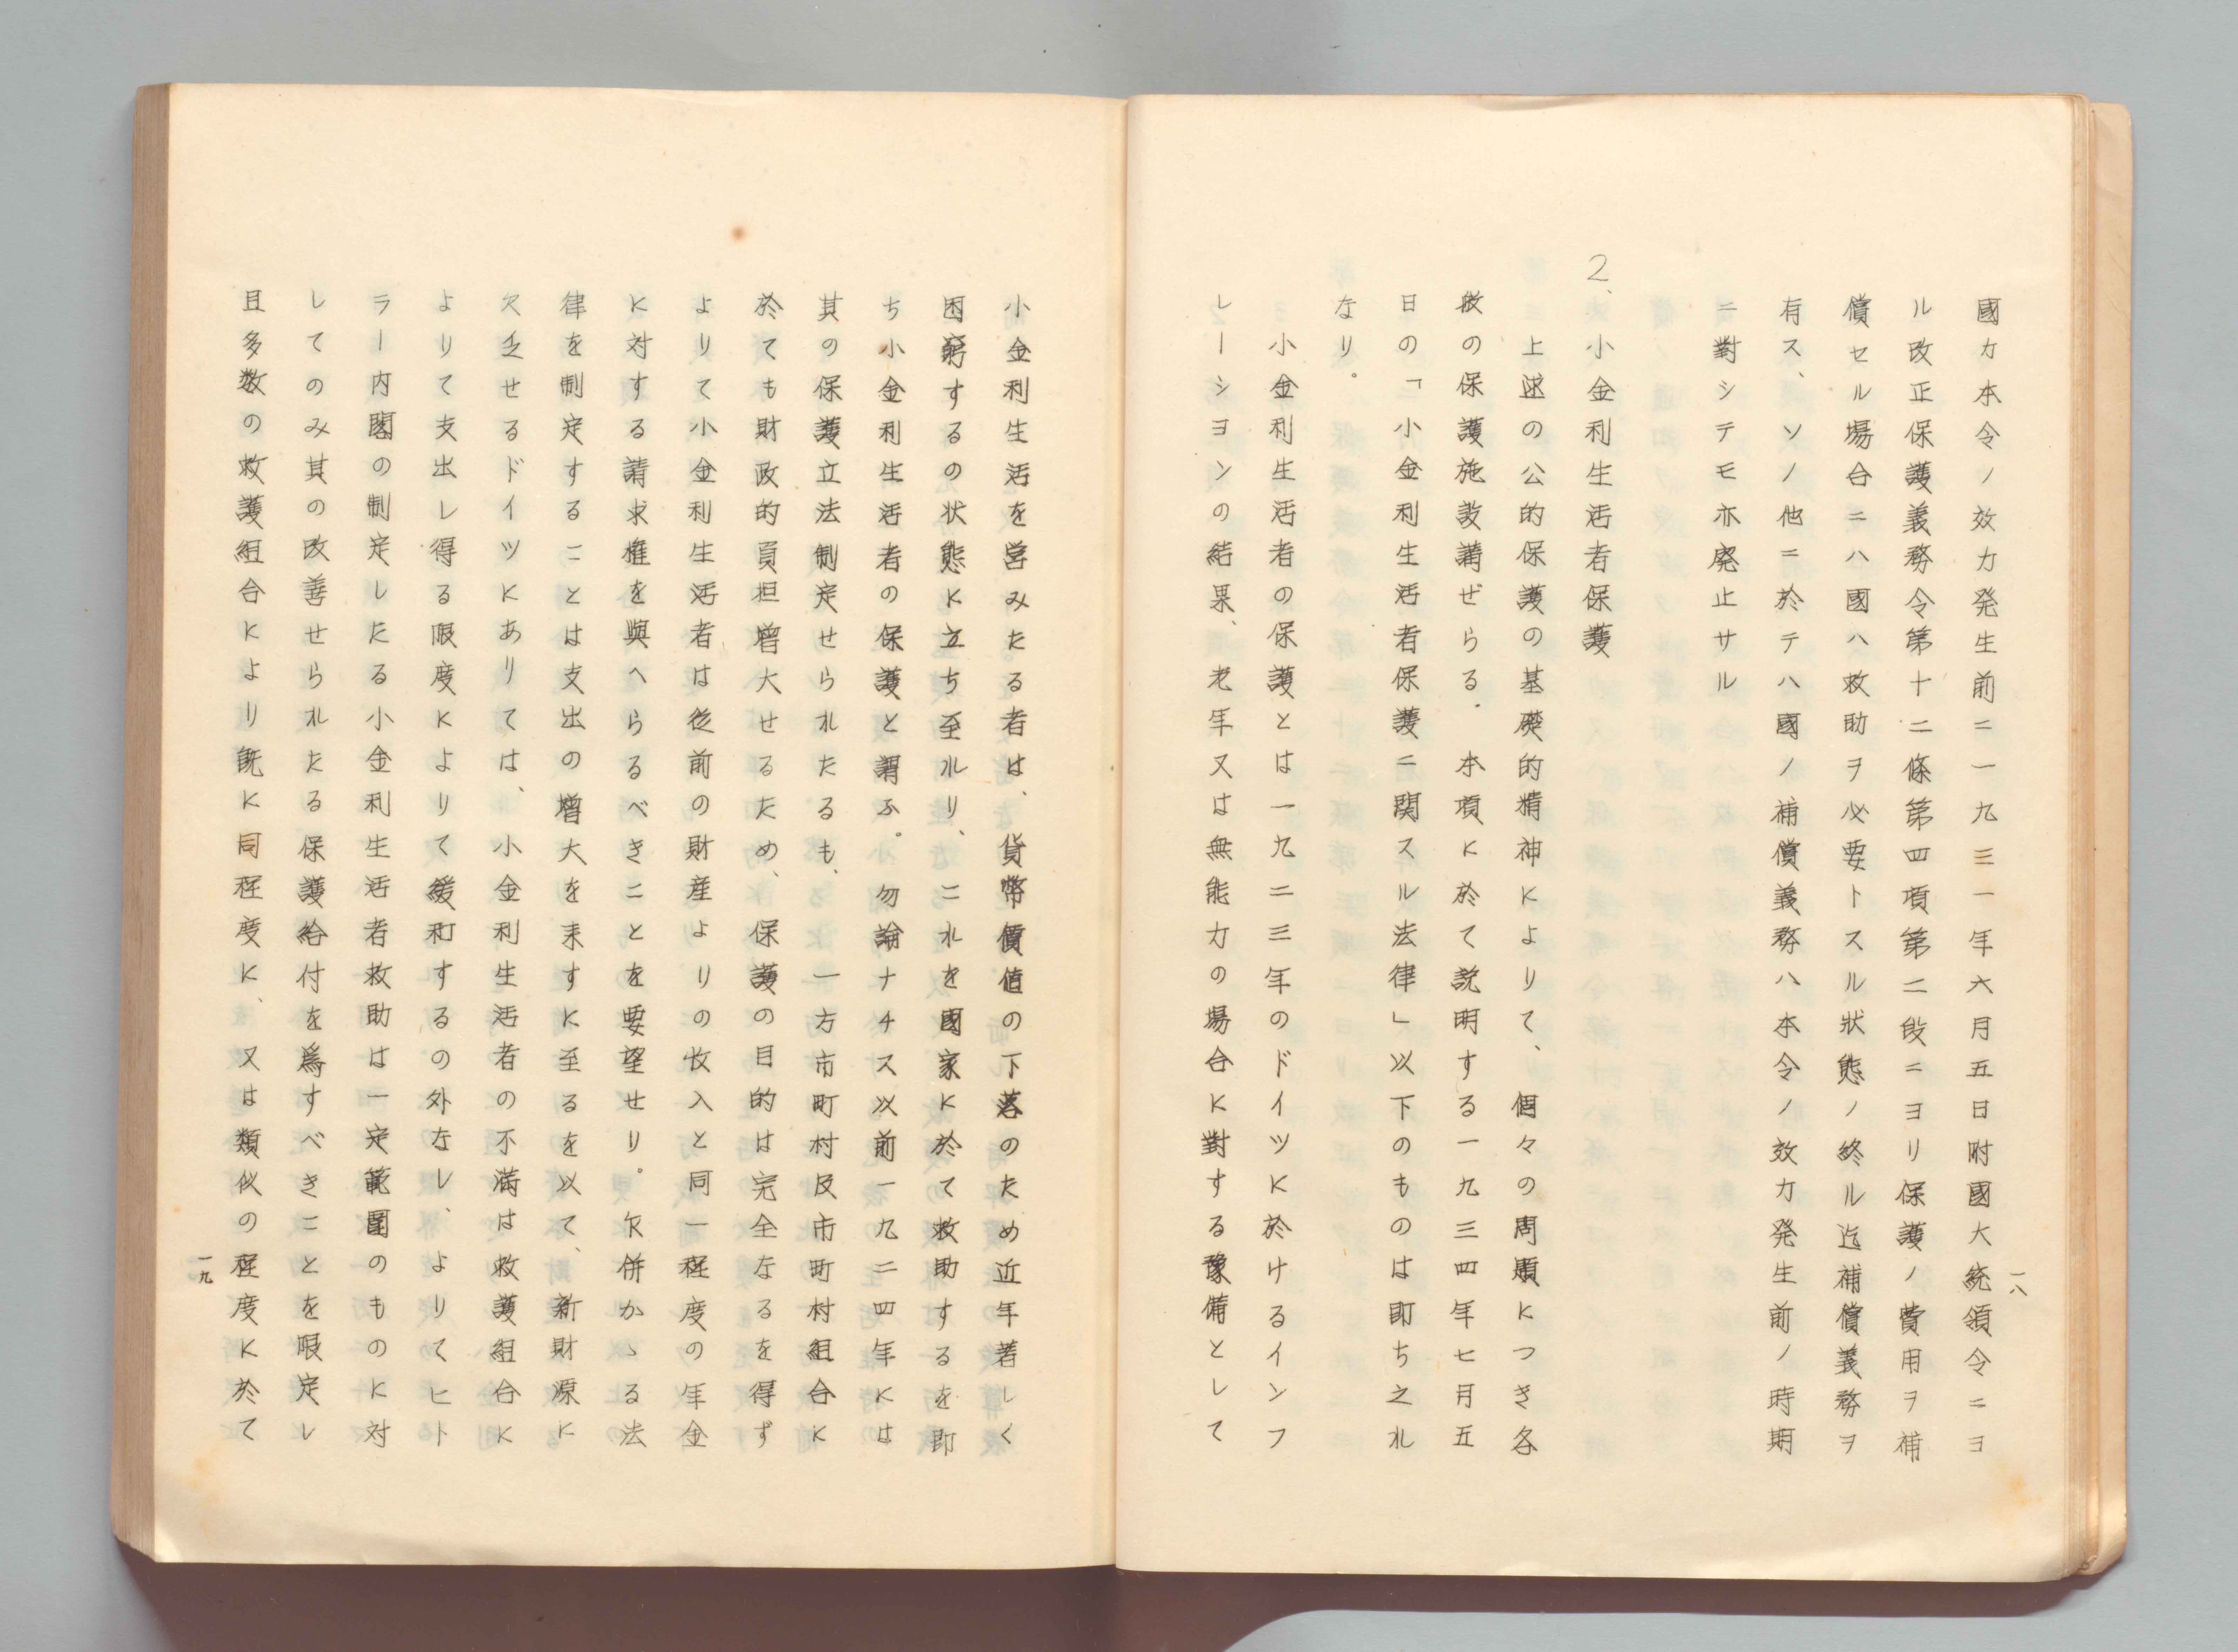 國カ本令ノ效力発生前ニ一九三一年六月五日附國大統領令ニヨ
ル改正保護義務令第十二條第四項第二段ニヨリ保護ノ費用ヲ補
償セル場合ニハ國ハ救助ヲ必要トスル狀態ノ終ル迄補償義務ヲ
有ス、ソノ他ニ於テハ國ノ補償義務ハ本令ノ效力発生前ノ時期
ニ對シテモ亦廃止サル
2、小金利生活者保護
上述の公的保護の基礎的精神によりて、個々の事項につき各
種の保護施設講ぜらる。本項に於て説明する一九三四年七月五
日の「小金利生活者保護ニ関スル法律」以下のものは即ち之れ
なり。
小金利生活者の保護とは一九二三年のドイツに於けるインフ
レーションの結果、老年又は無能力の場合に對する豫備として
一八
小金利生活を営みたる者は、貨幣價値の下落のため近年著しく
困窮するの状態に立ち至れり、これを國家に於て救助するを即
ち小金利生活者の保護と謂ふ。勿論ナチス以前一九二四年には
其の保護立法制定せられたるも、一方市町村及市町村組合に
於ても財政的負担増大せるため、保護の目的は完全なるを得ず
よりて小金利生活者は従前の財産よりの收入と同一程度の年金
に対する請求権を與へらるべきことを要望せり。欠併かゝる法
律を制定することは支出の増大を来すに至るを以て、新財源に
欠乏せるドイツにありては、小金利生活者の不満は救護組合に
よりて支出し得る限度によりて緩和するの外なし、よりてヒト
ラー内閣の制定したる小金利生活者救助は一定範囲のものに対
してのみ其の改善せられたる保護給付を爲すべきことを限定し
且多数の救護組合により既に同程度に、又は類似の程度に於て
一九